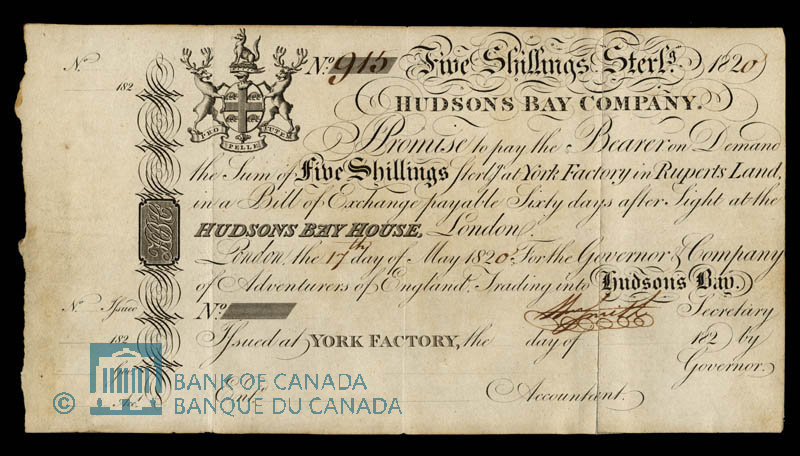 Nº 915 Five Shillings Sterlg. 1820
HUDSONS BAY COMPANY.
PRO PELLE CUTEM
Promise to pay the Bearer on Demand
the Sum of Five Shillings Sterlg. at York Factory in Ruperts Land,
in a Bill of Exchange payable Sixty days after Sight at the
HUDSONS BAY HOUSE, London.
London, the 17th day of May 1820. For the Governor & Company
of Adventurers of England, Trading into Hudsons Bay.
Nº Secretary
Issued at YORK FACTORY, the day of 182 by
Governor.
Entd. Accountant.
Nº
182
HBC
Nº Issued
182
Govr.
Acct.
© BANK OF CANADA
BANQUE DU CANADA